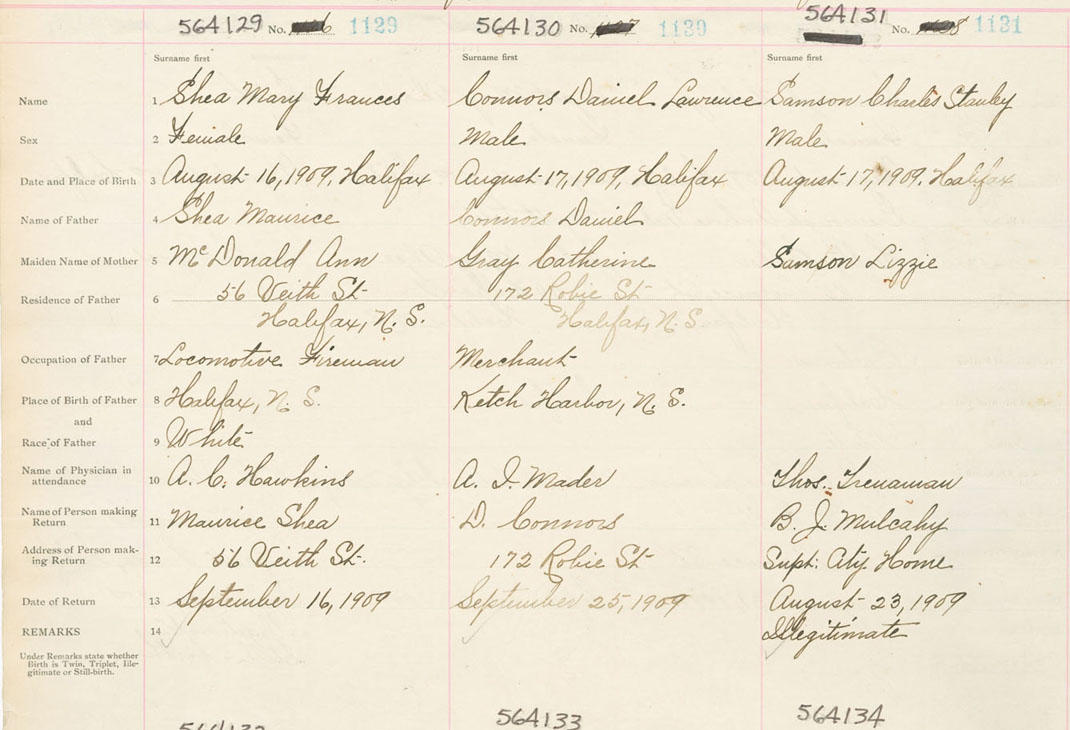 564129 No. 1129 564130 No. 1130 564131 No. 1131
Surname first Surname first Surname first
Name 1 Shea Mary Frances Connors Daniel Lawrence Samson Charles Stanley
Sex 2 Female Male Male
Date and Place of Birth 3 August 16, 1909, Halifax August 17, 1909, Halifax August 17, 1909, Halifax
Name of Father 4 Shea Maurice Connors Daniel
Maiden Name of Mother 5 McDonald Ann Gray Catherine Samson Lizzie
Residence of Father 6 56 Veith St 172 Robie St
Halifax, N. S. Halifax, N. S.
Occupation of Father 7 Locomotive Fireman Merchant
Place of Birth of Father 8 Halifax, N. S. Ketch Harbor, N. S.
and
Race of Father 9 White
Name of Physician in
attendance 10 A. C. Hawkins A. I. Mader Thos. Trenaman
Name of Person making
Return 11 Maurice Shea D. Connors B. J. Mulcahy
Address of Person mak-
ing Return 12 56 Veith St. 172 Robie St Supt. City Home
Date of Return 13 September 16, 1909 September 25, 1909 August 23, 1909
REMARKS 14 Illegitimate
Under Remarks state whether
Birth is Twin, Triplet, Ille-
gitimate or Still-birth.
564133 564134